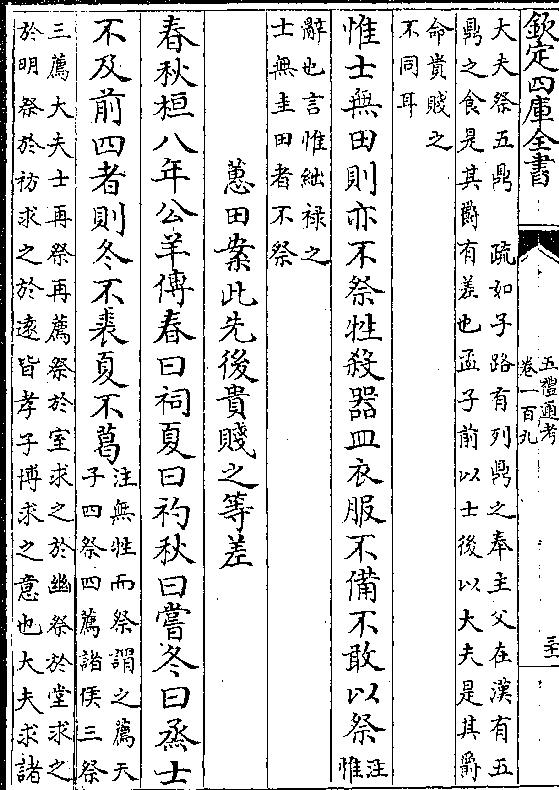 欽定四庫全書
五禮通考
卷一百九
三十一
大夫祭五鼎　疏如子路有列鼎之奉主父在漢有五
鼎之食是其爵有差也孟子前以士後以大夫是其爵
命貴賤之
不同耳
惟士無田則亦不祭牲殺器皿衣服不備不敢以祭注惟
辭也言惟絀禄之
士無圭田者不祭
蕙田案此先後貴賤之等差
春秋桓八年公羊傳春曰祠夏曰礿秋曰嘗冬曰烝士
不及前四者則冬不裘夏不葛注無牲而祭謂之薦天
子四祭四薦諸侯三祭
三薦大夫士再祭再薦祭於室求之於幽祭於堂求之
於明祭於祊求之於遠皆孝子博求之意也大夫求諸